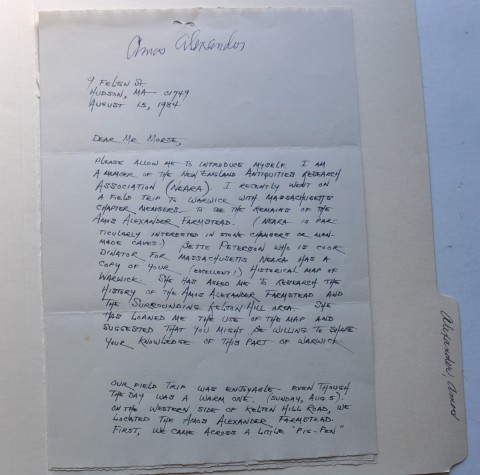 Amos Alexander
9 Felton St
Hudson, MA 01749
August 15, 1984
Dear Mr Morse,
Please allow me to introduce myself. I am
a member of the New England Antiquities Research
Association (NEARA). I recently went on
a field trip to Warwick with Massachusetts
chapter members to see the remains of the
Amos Alexander Farmstead. (NEARA is par-
ticularly interested in stone chambers or man-
made caves.) Bette Peterson who is coor
dinator for Massachusetts NEARA has a
copy of your (excellent!) historical map of
Warwick. She has asked me to research the
history of the Amos Alexander Farmstead and
the surrounding Kelton Hill area. She
has loaned me the use of the map and
suggested that you might be willing to share
your knowledge of this part of Warwick.
Our field trip was enjoyable even though
the day was a warm one. (Sunday, Aug 5).
On the western side of Kelton Hill Road, we
located the Amos Alexander Farmstead.
First, we came across a little "pig-pen"
Alexander, Amos